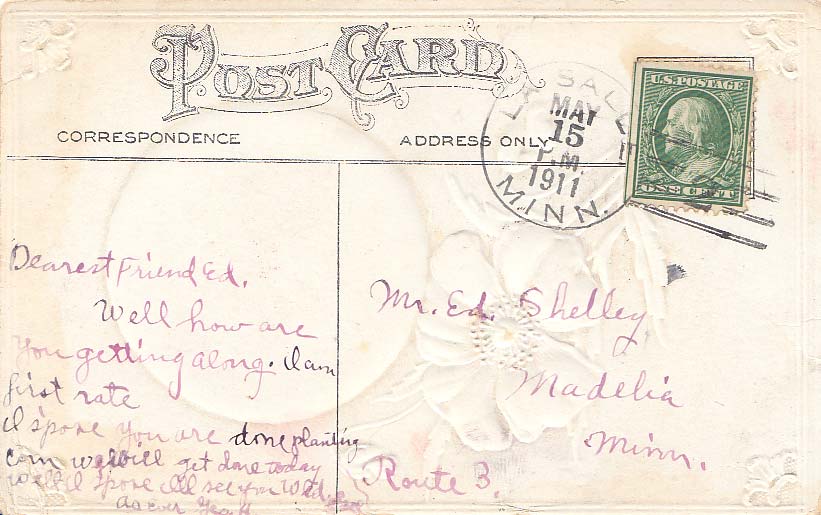 POST CARD
CORRESPONDENCE
ADDRESS ONLY
LA SALLE
MAY
15
P.M.
1911
MINN.
U.S. POSTAGE
ONE CENT
Dearest Friend Ed.
Well how are
you getting along. I am
first rate
I spose you are done planting
corn we will get done today
well I spose I'll see you Wed.
as ever
Mr. Ed. Shelley
Madelia
Minn.
Route 3.